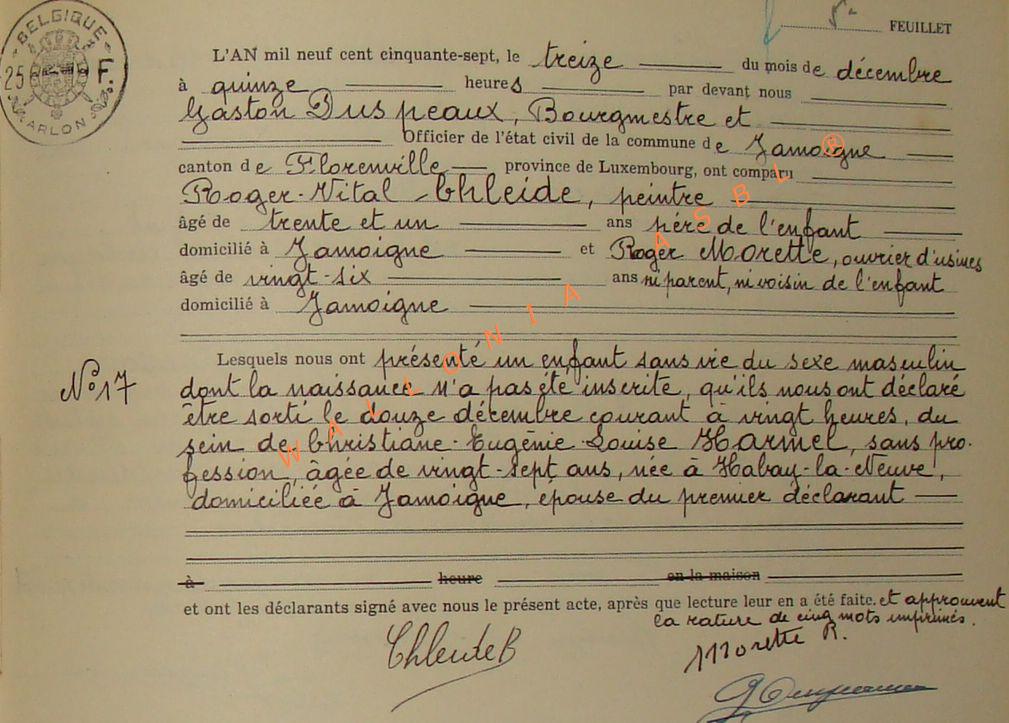 5- FEUILLET
BELGIQUE
25 F.
ARLON
L'AN mil neuf cent cinquante-sept, le treize du mois de décembre
à quinze heures par devant nous
Gaston Duspeaux, Bourgmestre et
Officier de l'état civil de la commune de Jamoigne
canton de Florenville province de Luxembourg, ont comparu
Roger-Vital Chleide, peintre
âgé de trente et un ans père de l'enfant
domicilié à Jamoigne et Roger Morette, ouvrier d'usines
âgé de vingt-six ans ni parent, ni voisin de l'enfant
domicilié à Jamoigne
Lesquels nous ont présenté un enfant sans vie du sexe masculin
N° 17
dont la naissance n'a pas été inscrite, qu'ils nous ont déclaré
être sorti le douze décembre courant à vingt heures, du
sein de Christiane-Eugénie-Louise Harmel, sans pro-
fession, âgée de vingt-sept ans, née à Habay-la-Neuve,
domiciliée à Jamoigne, épouse du premier déclarant
à heure en la maison
et ont les déclarants signé avec nous le présent acte, après que lecture leur en a été faite. et approuvent
la rature de cinq mots imprimés.
Chleide R
Morette R.
WALLONIA ASBL ®